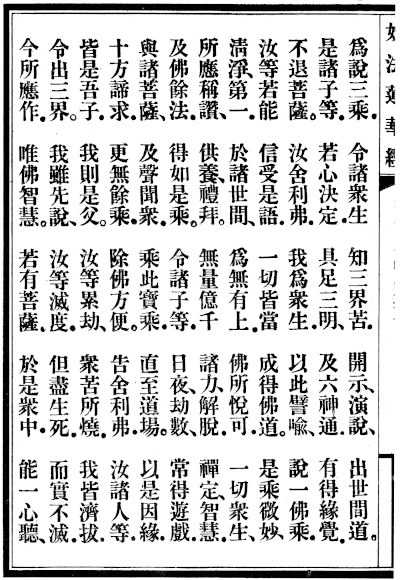 妙法蓮華經
爲說三乘。令諸衆生知三界苦。開示、演說、出世間道。
是諸子等。若心決定。具足三明、及六神通。有得緣覺。
不退菩薩。汝舍利弗。我爲衆生。以此譬喻、說一佛乘。
汝等若能信受是語。一切皆當成得佛道。是乘微妙、
淸淨、第一。於諸世間、爲無有上。佛所悅可。一切衆生、
所應稱讚、供養、禮拜。無量億千諸力、解脫、禪定、智慧、
及佛餘法。得如是乘。令諸子等、日夜、劫數、常得遊戲。
與諸菩薩、及聲聞衆、乘此寶乘、直至道場。以是因緣、
十方諦求。更無餘乘。除佛方便。告舍利弗。汝諸人等、
皆是吾子。我則是父。汝等累劫、衆苦所燒。我皆濟拔、
令出三界。我雖先說、汝等滅度。但盡生死。而實不滅。
今所應作。唯佛智慧。若有菩薩、於是衆中、能一心聽、